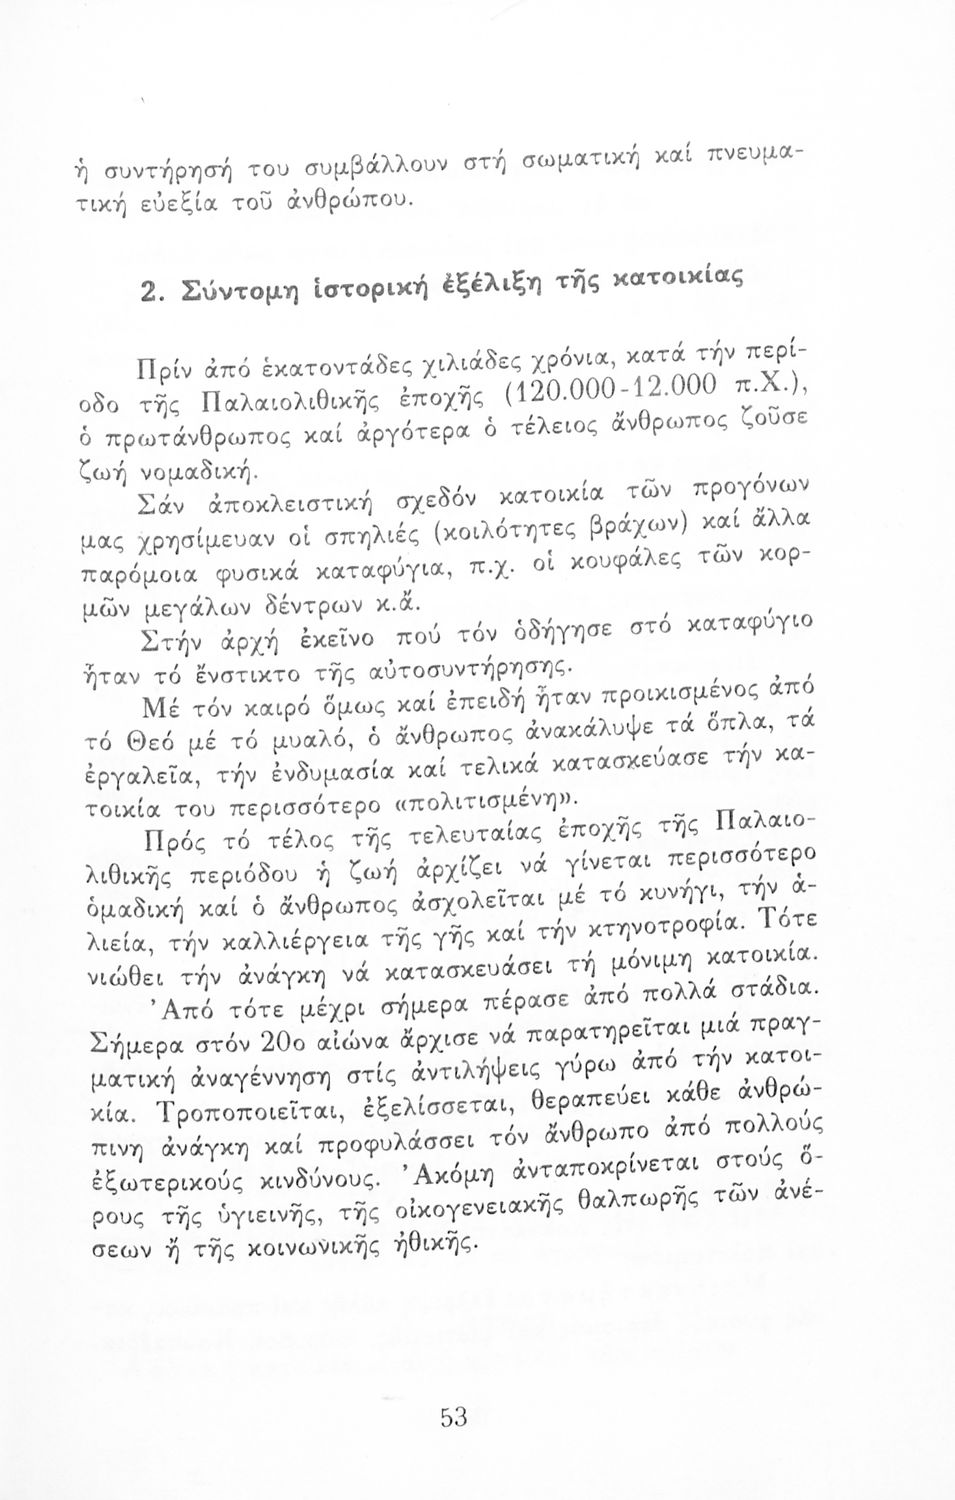 ἡ συντήρησή του συμβάλλουν στή σωματική καί πνευμα-
τική εὐεξία τοῦ ἀνθρώπου.
2. Σύντομη ἱστορική ἐξέλιξη τῆς κατοικίας
Πρίν ἀπό ἑκατοντάδες χιλιάδες χρόνια, κατά τήν περί-
οδο τῆς Παλαιολιθικῆς ἐποχῆς (120.000-12.000 π.Χ.),
ὁ πρωτάνθρωπος καί ἀργότερα ὁ τέλειος ἄνθρωπος ζοῦσε
ζωή νομαδική.
Σάν ἀποκλειστική σχεδόν κατοικία τῶν προγόνων
μας χρησίμευαν οἱ σπηλιές (κοιλότητες βράχων) καί ἄλλα
παρόμοια φυσικά καταφύγια, π.χ. οἱ κουφάλες τῶν κορ-
μῶν μεγάλων δέντρων κ.ἄ.
Στήν ἀρχή ἐκεῖνο πού τόν ὁδήγησε στό καταφύγιο
ἦταν τό ἔνστικτο τῆς αὐτοσυντήρησης.
Μέ τόν καιρό ὅμως καί ἐπειδή ἦταν προικισμένος ἀπό
τό Θεό μέ τό μυαλό, ὁ ἄνθρωπος ἀνακάλυψε τά ὅπλα, τά
ἐργαλεῖα, τήν ἐνδυμασία καί τελικά κατασκεύασε τήν κα-
τοικία του περισσότερο «πολιτισμένη».
Πρός τό τέλος τῆς τελευταίας ἐποχῆς τῆς Παλαιο-
λιθικῆς περιόδου ἡ ζωή ἀρχίζει νά γίνεται περισσότερο
ὁμαδική καί ὁ ἄνθρωπος ἀσχολεῖται μέ τό κυνήγι, τήν ἁ-
λιεία, τήν καλλιέργεια τῆς γῆς καί τήν κτηνοτροφία. Τότε
νιώθει τήν ἀνάγκη νά κατασκευάσει τή μόνιμη κατοικία.
Ἀπό τότε μέχρι σήμερα πέρασε ἀπό πολλά στάδια.
Σήμερα στόν 20ο αἰώνα ἄρχισε νά παρατηρεῖται μιά πραγ-
ματική ἀναγέννηση στίς ἀντιλήψεις γύρω ἀπό τήν κατοι-
κία. Τροποποιεῖται, ἐξελίσσεται, θεραπεύει κάθε ἀνθρώ-
πινη ἀνάγκη καί προφυλάσσει τόν ἄνθρωπο ἀπό πολλούς
ἐξωτερικούς κινδύνους. Ἀκόμη ἀνταποκρίνεται στούς ὅ-
ρους τῆς ὑγιεινῆς, τῆς οἰκογενειακῆς θαλπωρῆς τῶν ἀνέ-
σεων ἤ τῆς κοινωνικῆς ἠθικῆς.
53